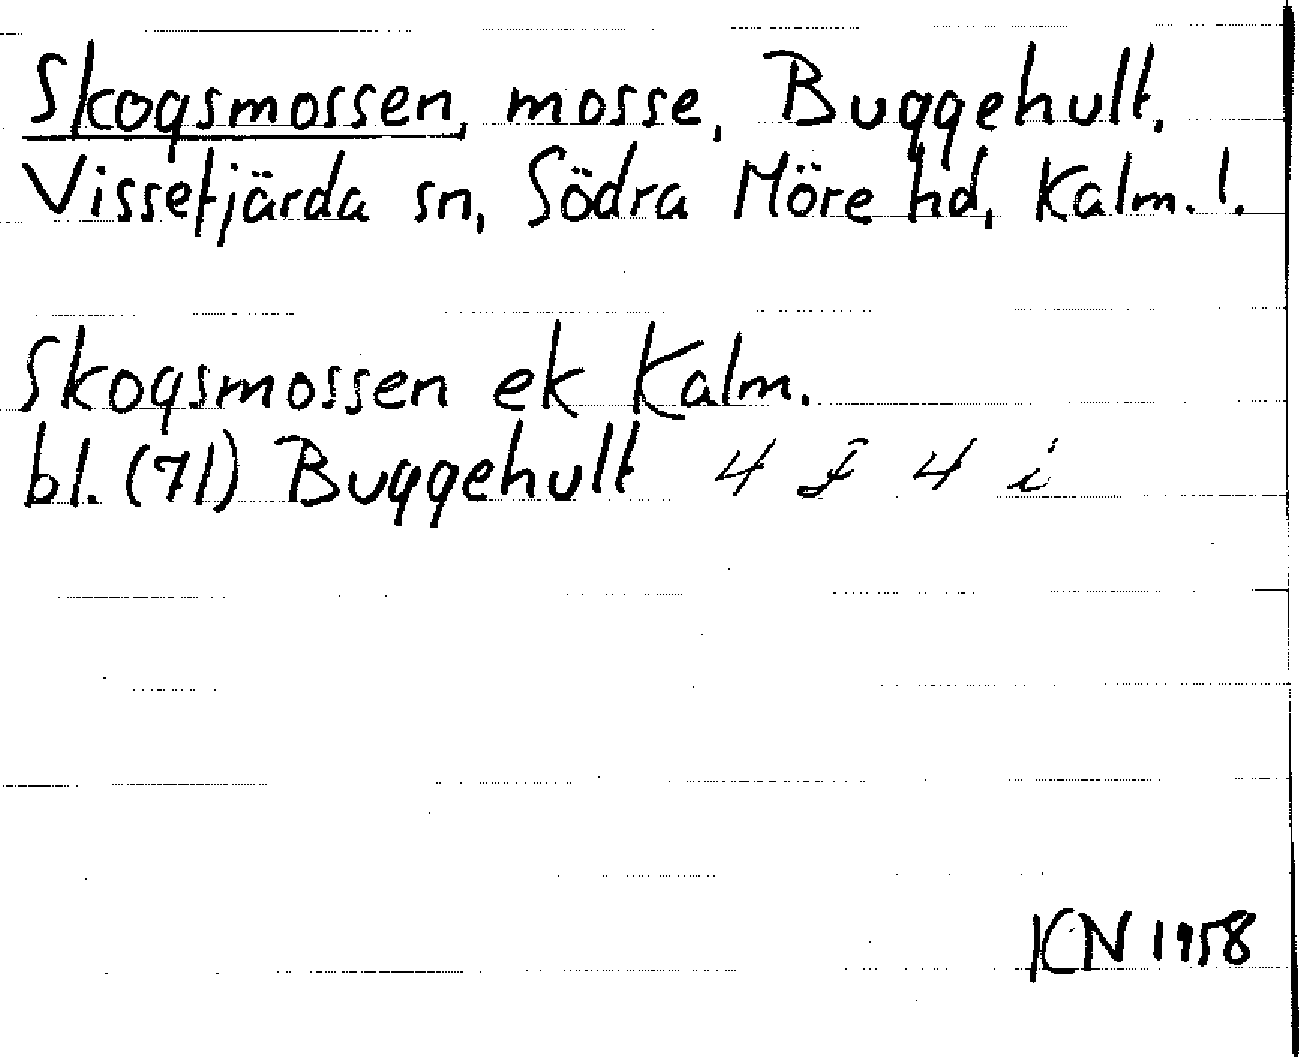 Skogsmossen, mosse, Buggehult,
Vissefjärda sn, Södra Möre hd, Kalm. l.
Skogsmossen ek Kalm.
bl. (71) Buggehult 4 F 4 i
KN 1958